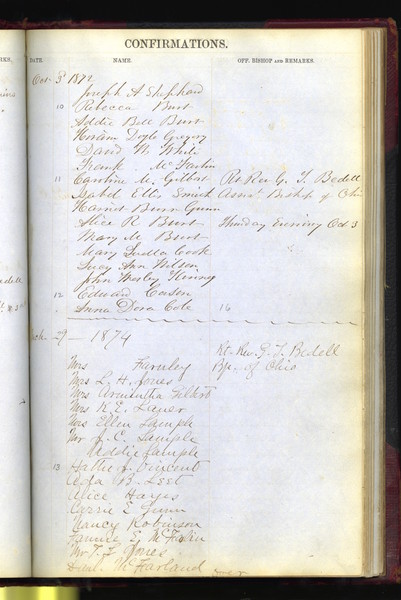 CONFIRMATIONS.
DATE. NAME. OFF. BISHOP AND REMARKS.
Oct 3d 1872
Joseph A Shephard
10 Rebecca Burt
Addie Bell Burt
Doyle Gregory
David W. White
Frank McFarlin
11 Caroline M. Gilbert Rt Rev G. T. Bedell
Isabel Ellis Smick Assist Bishop of Ohio
Harriet Gunn
Alice R. Burt Thursday Evening Oct 3
Mary M. Burt
Mary Cook
Lucy Ann Wilson
John Wesley
12 Edward
Anna Dora Cole 16
29 - 1874
Rt. Rev. G. T. Bedell
Mrs Bp. of Ohio
Mrs L. H. Jones
Mrs Gilbert
Mrs K. E.
Mrs Ellen Sample
Mr C. Sample
Addie Sample
13 Vincent
Ada B. Lest
Alice Hayes
Carrie E Gunn
Nancy Robinson
Fannie E. McFarlin
Mr T. J Jones
McFarland